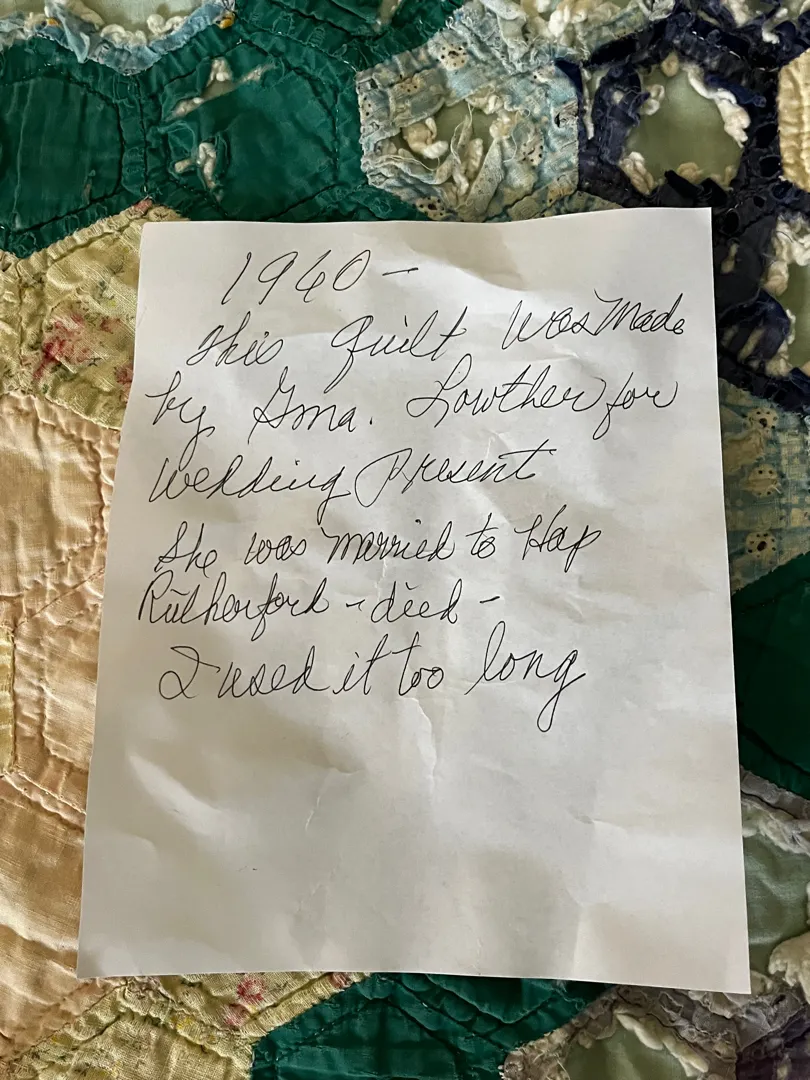 1960 -
This Quilt was made
by Gma. Lowther for
wedding Present
She was married to Hap
Rutherford - died -
I used it too long